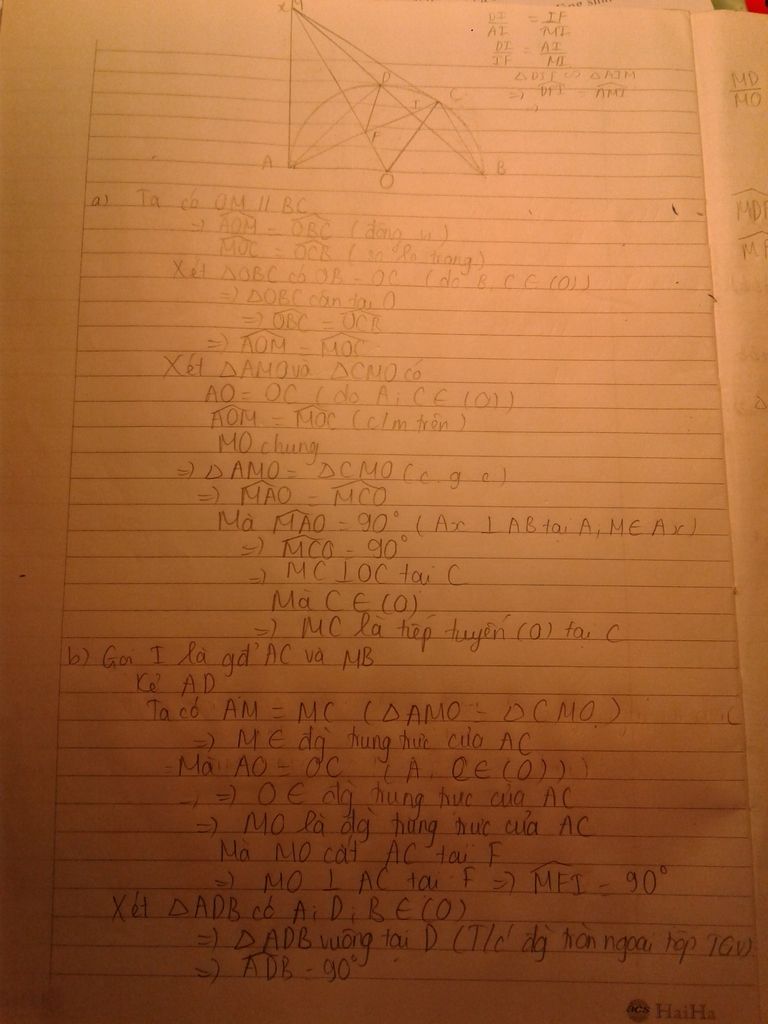 x M
D
I C
F
A
O
B
DI/AI = IF/MI
DI/IF = AI/MI
△DIF ∽ △AIM
=> DFI = AMI
=>
MD/MO
a) Ta có OM // BC
=> AOM = OBC (đồng vị)
MOC = OCB (so le trong)
Xét △OBC có OB = OC (do B, C ∈ (O))
=> △OBC cân tại O
=> OBC = OCB
=> AOM = MOC
Xét △AMO và △CMO có
AO = OC (do A; C ∈ (O))
AOM = MOC (c/m trên)
MO chung
=> △AMO = △CMO (c. g. c)
=> MAO = MCO
Mà MAO = 90° (Ax ⊥ AB tại A, M ∈ Ax)
=> MCO = 90°
=> MC ⊥ OC tại C
Mà C ∈ (O)
=> MC là tiếp tuyến (O) tại C
b) Gọi I là gđ' AC và MB
Kẻ AD
Ta có AM = MC (△AMO = △CMO)
=> M ∈ đg trung trực của AC
Mà AO = OC (A, C ∈ (O))
=> O ∈ đg trung trực của AC
=> MO là đg trung trực của AC
Mà MO cắt AC tại F
=> MO ⊥ AC tại F => MFI = 90°
Xét △ADB có A; D; B ∈ (O)
=> △ADB vuông tại D (T/c' đg tròn ngoại tiếp TGV)
=> ADB = 90°
acs HaiHa